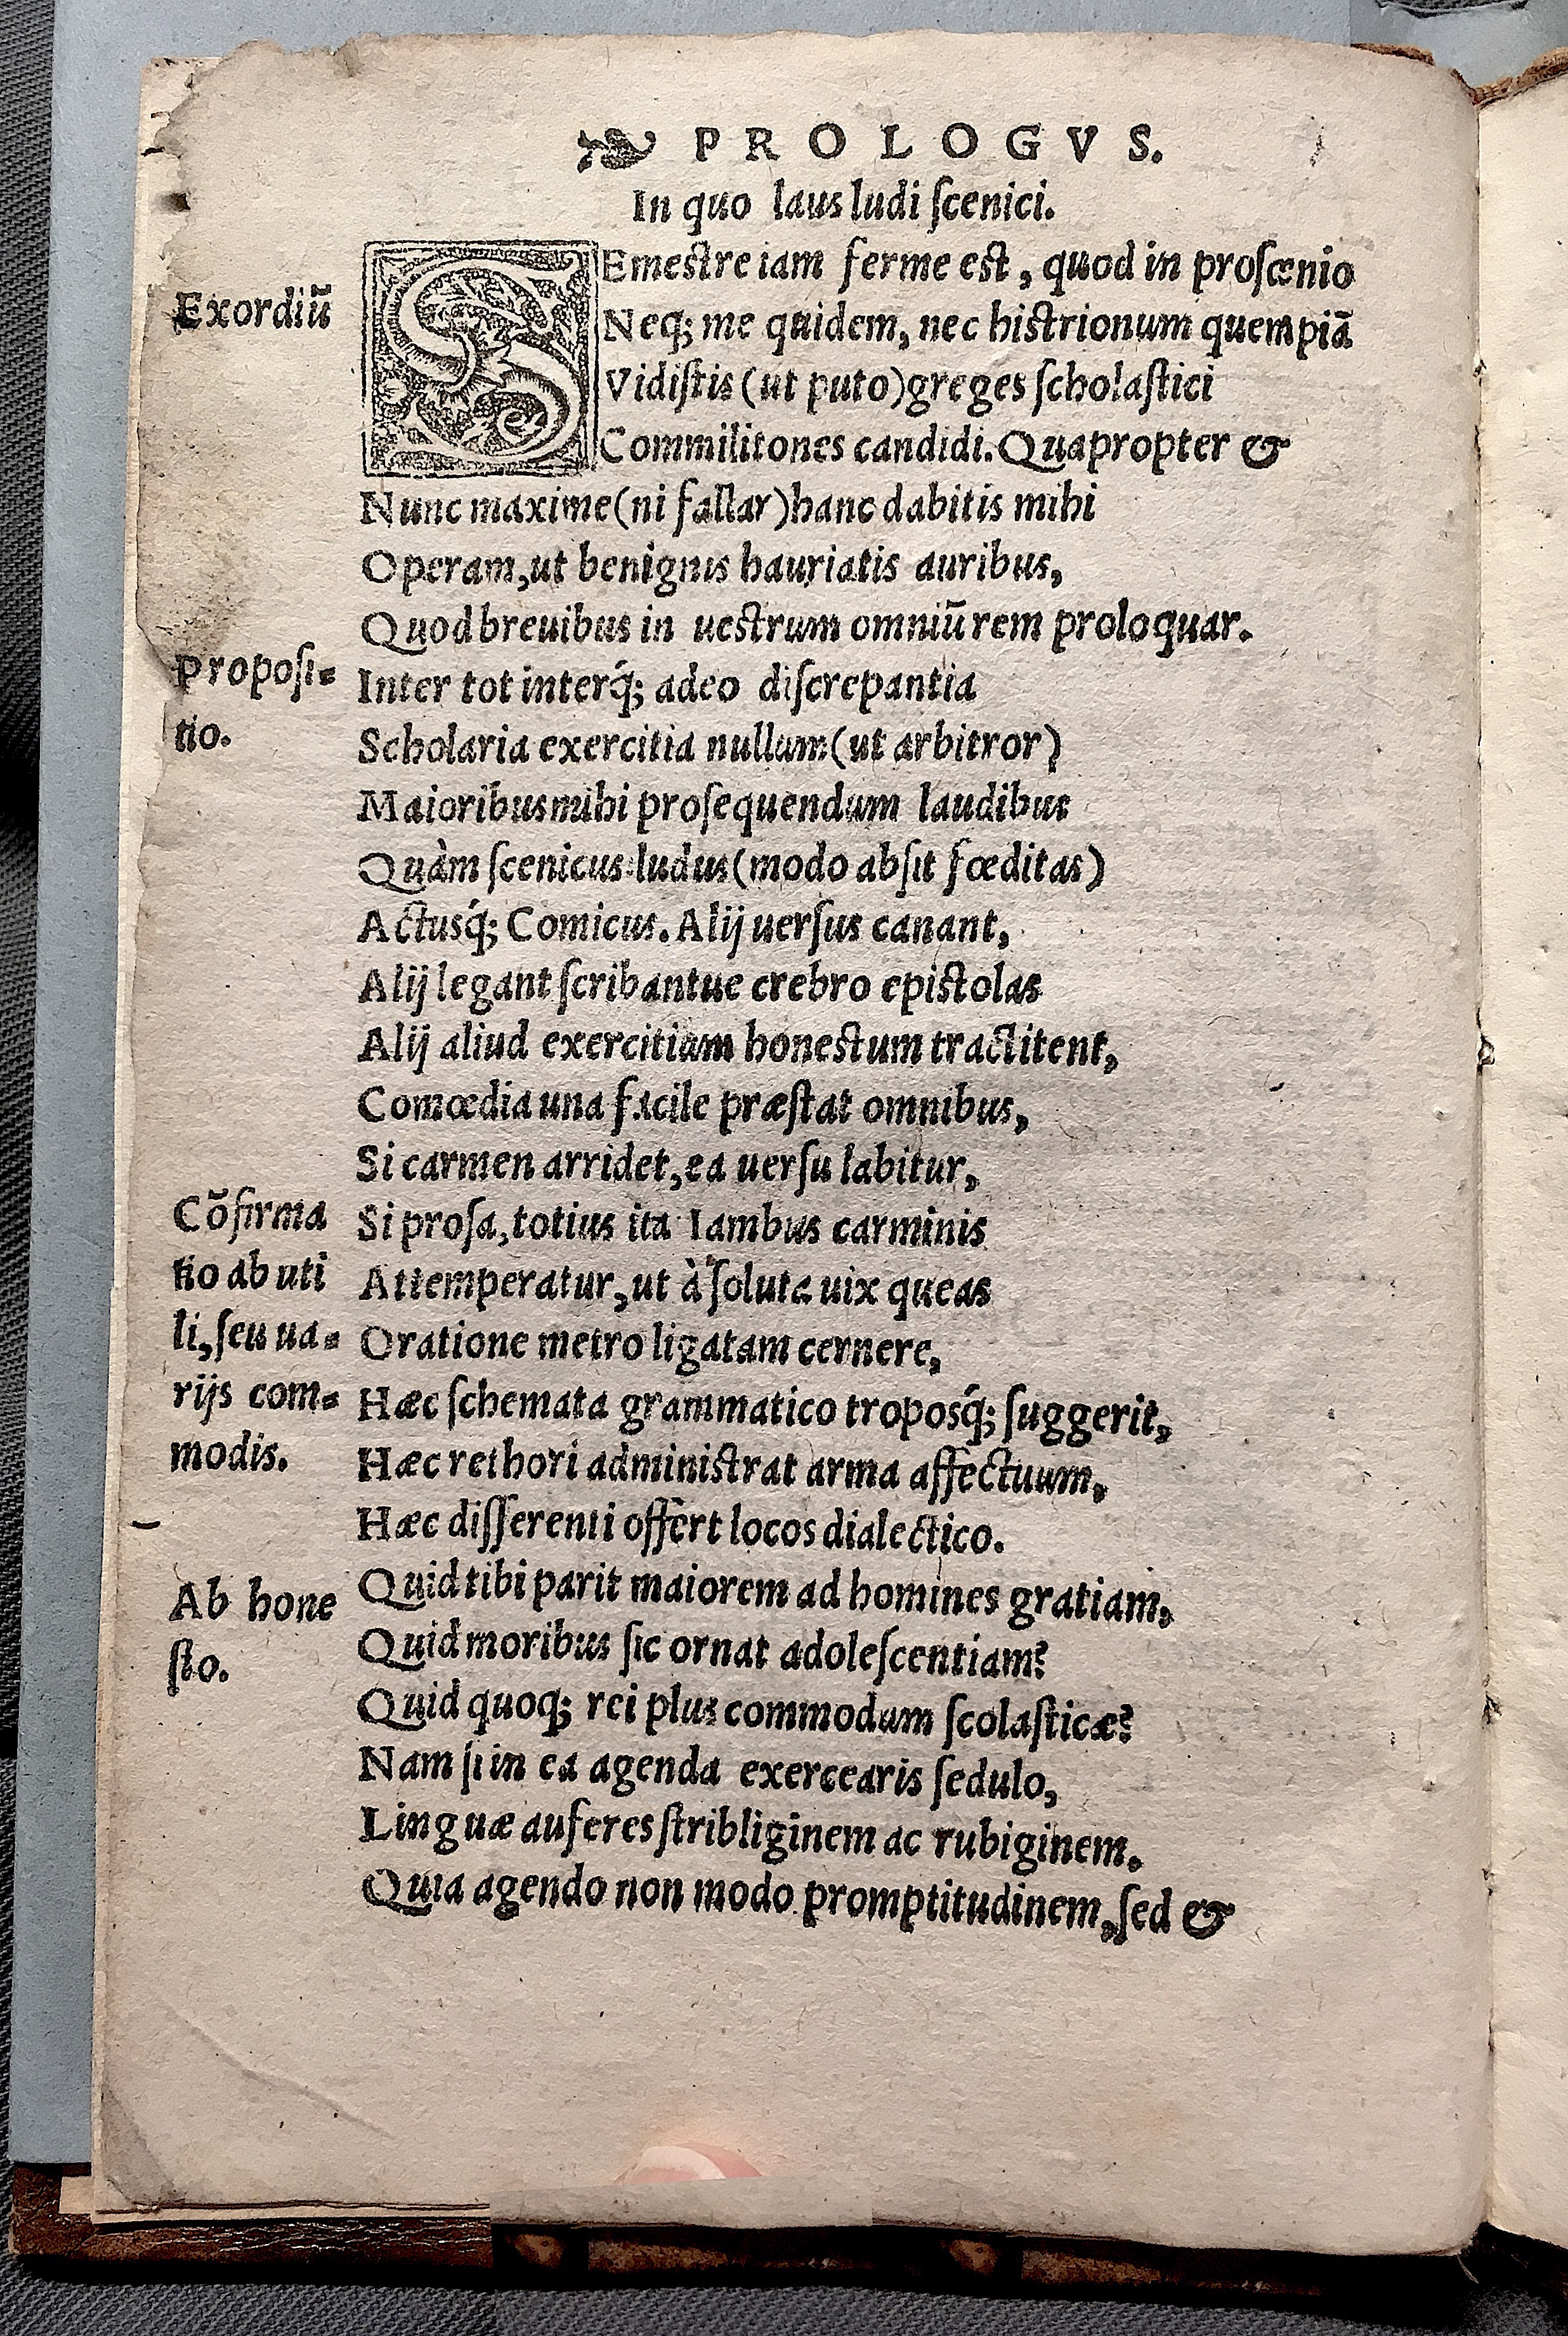 PROLOGVS.
In quo laus ludi ſcenici.
Exordiū
SEmestre iam ferme est, quod in proſcenio
Neq; me quidem, nec histrionum quempiā
Vidiſtis (ut puto) greges ſcholaſtici
Commilitones candidi. Quapropter &
Nunc maxime (ni fallar) hanc dabitis mihi
Operam, ut benignis hauriatis auribus,
Quod breuibus in uestrum omniū rem proloquar.
Propoſi=
tio.
Inter tot interq́; adeo diſcrepantia
Scholaria exercitia nullum (ut arbitror)
Maioribus mihi proſequendum laudibus
Quàm ſcenicus ludus (modo abſit fœditas)
Actusq́; Comicus. Alij uerſus canant,
Alij legant ſcribantue crebro epistolas
Alij aliud exercitium honestum tractitent,
Comœdia una facile præſtat omnibus,
Si carmen arridet, ea uerſu labitur,
Cōfirma
tio ab uti
li, ſeu ua=
rijs com=
modis.
Si proſa, totius ita Iambus carminis
Attemperatur, ut à ſoluta uix queas
Oratione metro ligatam cernere,
Hæc ſchemata grammatico troposq́; ſuggerit,
Hæc rethori administrat arma affectuum,
Hæc diſſerenti offert locos dialectico.
Ab hone
ſto.
Quid tibi parit maiorem ad homines gratiam,
Quid moribus ſic ornat adoleſcentiam?
Quid quoq; rei plus commodum ſcolaſticæ?
Nam ſi in ea agenda exercearis ſedulo,
Linguæ auferes ſtribliginem ac rubiginem.
Quia agendo non modo promptitudinem, ſed &